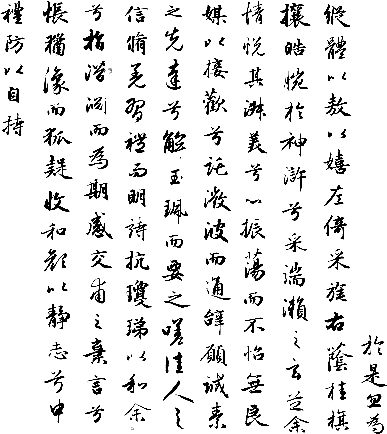 於是忽焉
縱體以敖以嬉左倚采旄右蔭桂旗
攘皓腕於神滸兮采湍瀨之玄芝余
情悅其淑美兮心振蕩而不怡無良
媒以接歡兮託微波而通辭願誠素
之先達兮解玉珮而要之嗟佳人之
信脩羌習禮而明詩抗瓊珶以和余
兮指潛淵而為期感交甫之棄言兮
悵猶豫而狐疑收和顏以靜志兮申
禮防以自持